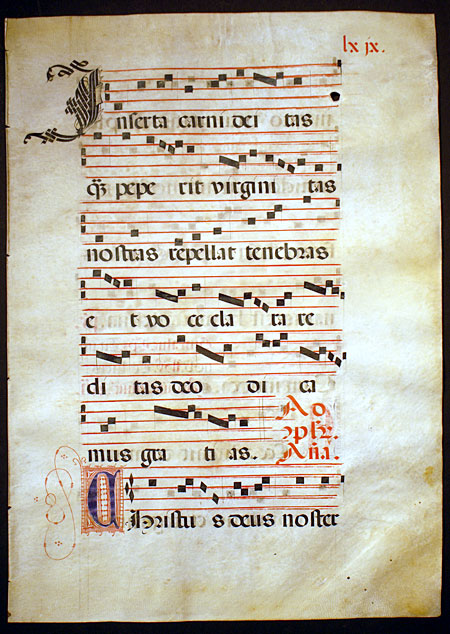 lx jx.
Jnserta carni dei tas
q̃ pepe rit virgini tas
nostras repellat tenebras
e t vo ce cla ta re
di tas deo di ca
mus gra ti as.
Añ̃a.
Christu s deus noster